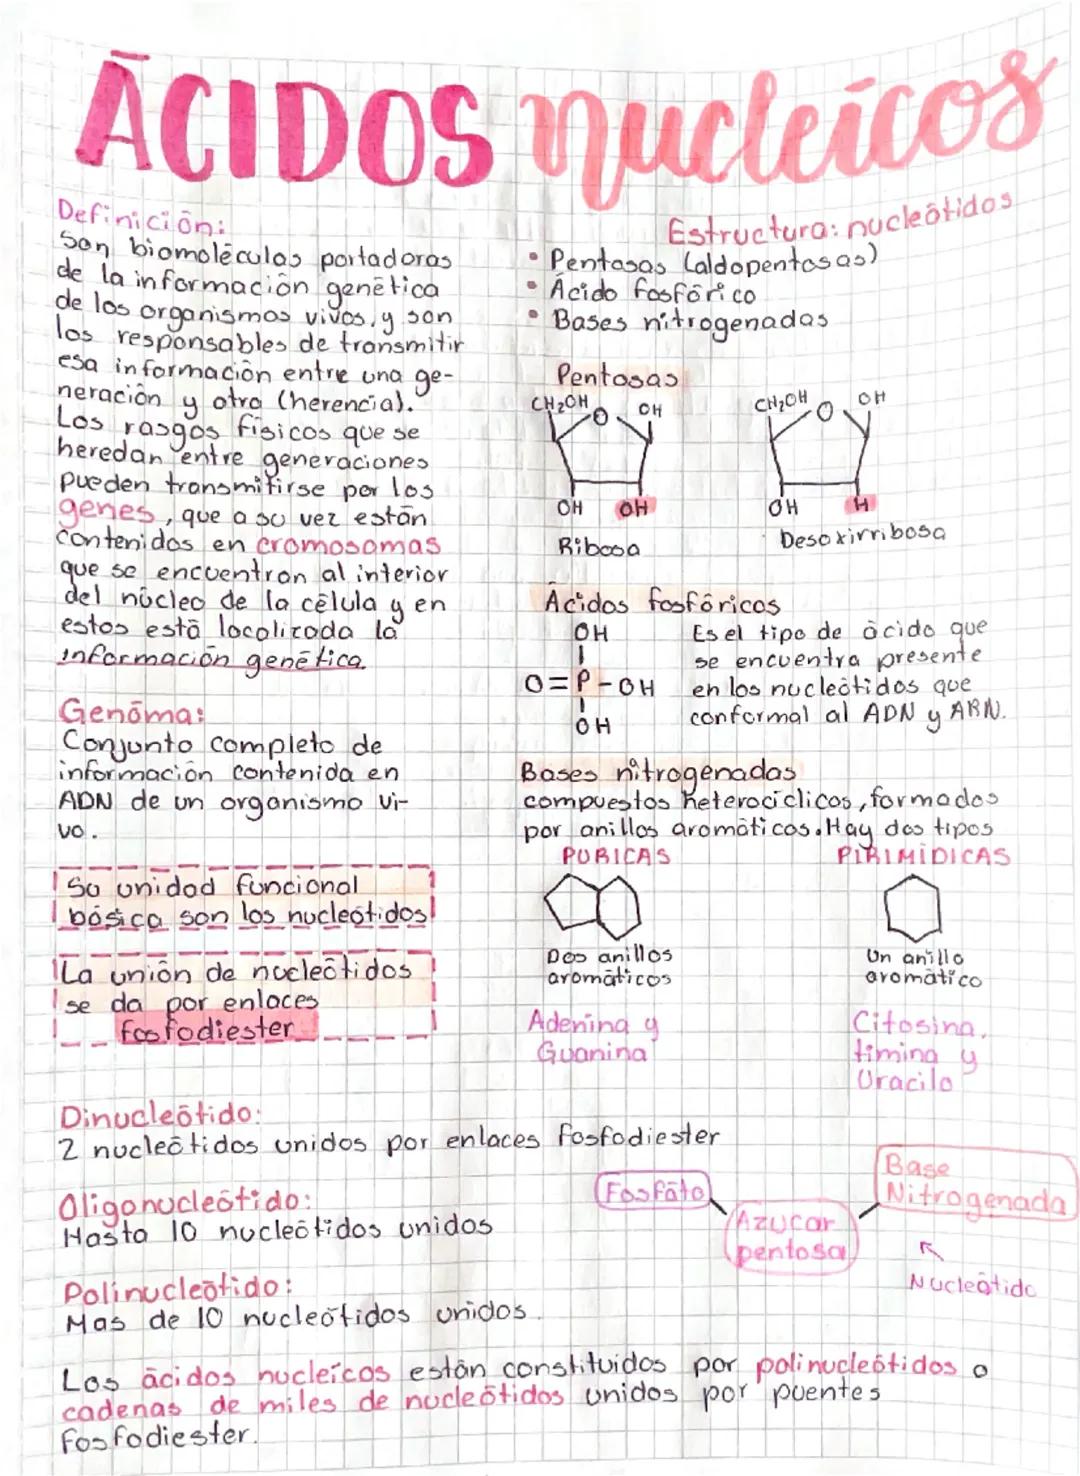 ĀCIDOS nucleicos
Definición:
Son biomoléculas portadoras
de la información genética
de los organismos vivos, y son
los responsables de transmitir
esa información entre una ge-
neración y otra (herencia).
Los rasgos físicos que se
heredan entre generaciones
pueden transmitirse por los
genes, que a su vez están
contenidos en cromosomas
que se encuentran al interior
del núcleo de la célula y en
estos está localizada la
información genética.
Genóma:
Conjunto completo de
información contenida en
ADN de un organismo vi-
vo.
Su unidad funcional
básica son los nucleótidos
La unión de nucleótidos
se da por enlaces
fosfodiester
Estructura: nucleótidos
• Pentosas (aldopentosas)
• Ácido fosfórico
• Bases nitrogenadas
Pentosas
CH₂OH O OH
OH OH
Ribosa
CH₂OH O OH
OH H
Desoxirribosa
Ácidos fosfóricos
OH
O=P-OH
OH
Es el tipo de ácido que
se encuentra presente
en los nucleótidos que
conformal al ADN y ARN.
Bases nitrogenadas
compuestos heterocíclicos, formados
por anillos aromáticos. Hay dos tipos
PURICAS
Dos anillos
aromáticos
Adenina y
Guanina
PIRIMIDICAS
Un anillo
aromático
Citosina,
timina y
Uracilo
Dinucleótido:
2 nucleótidos unidos por enlaces fosfodiester
Oligonucleótido:
Hasta 10 nucleótidos unidos
Polinucleótido:
Mas de 10 nucleótidos unidos.
Fosfato
Azucar
pentosa
Base
Nitrogenada
Nucleótido
Los ácidos nucleicos están constituidos por polinucleótidos o
cadenas de miles de nucleótidos unidos por puentes
fosfodiester.